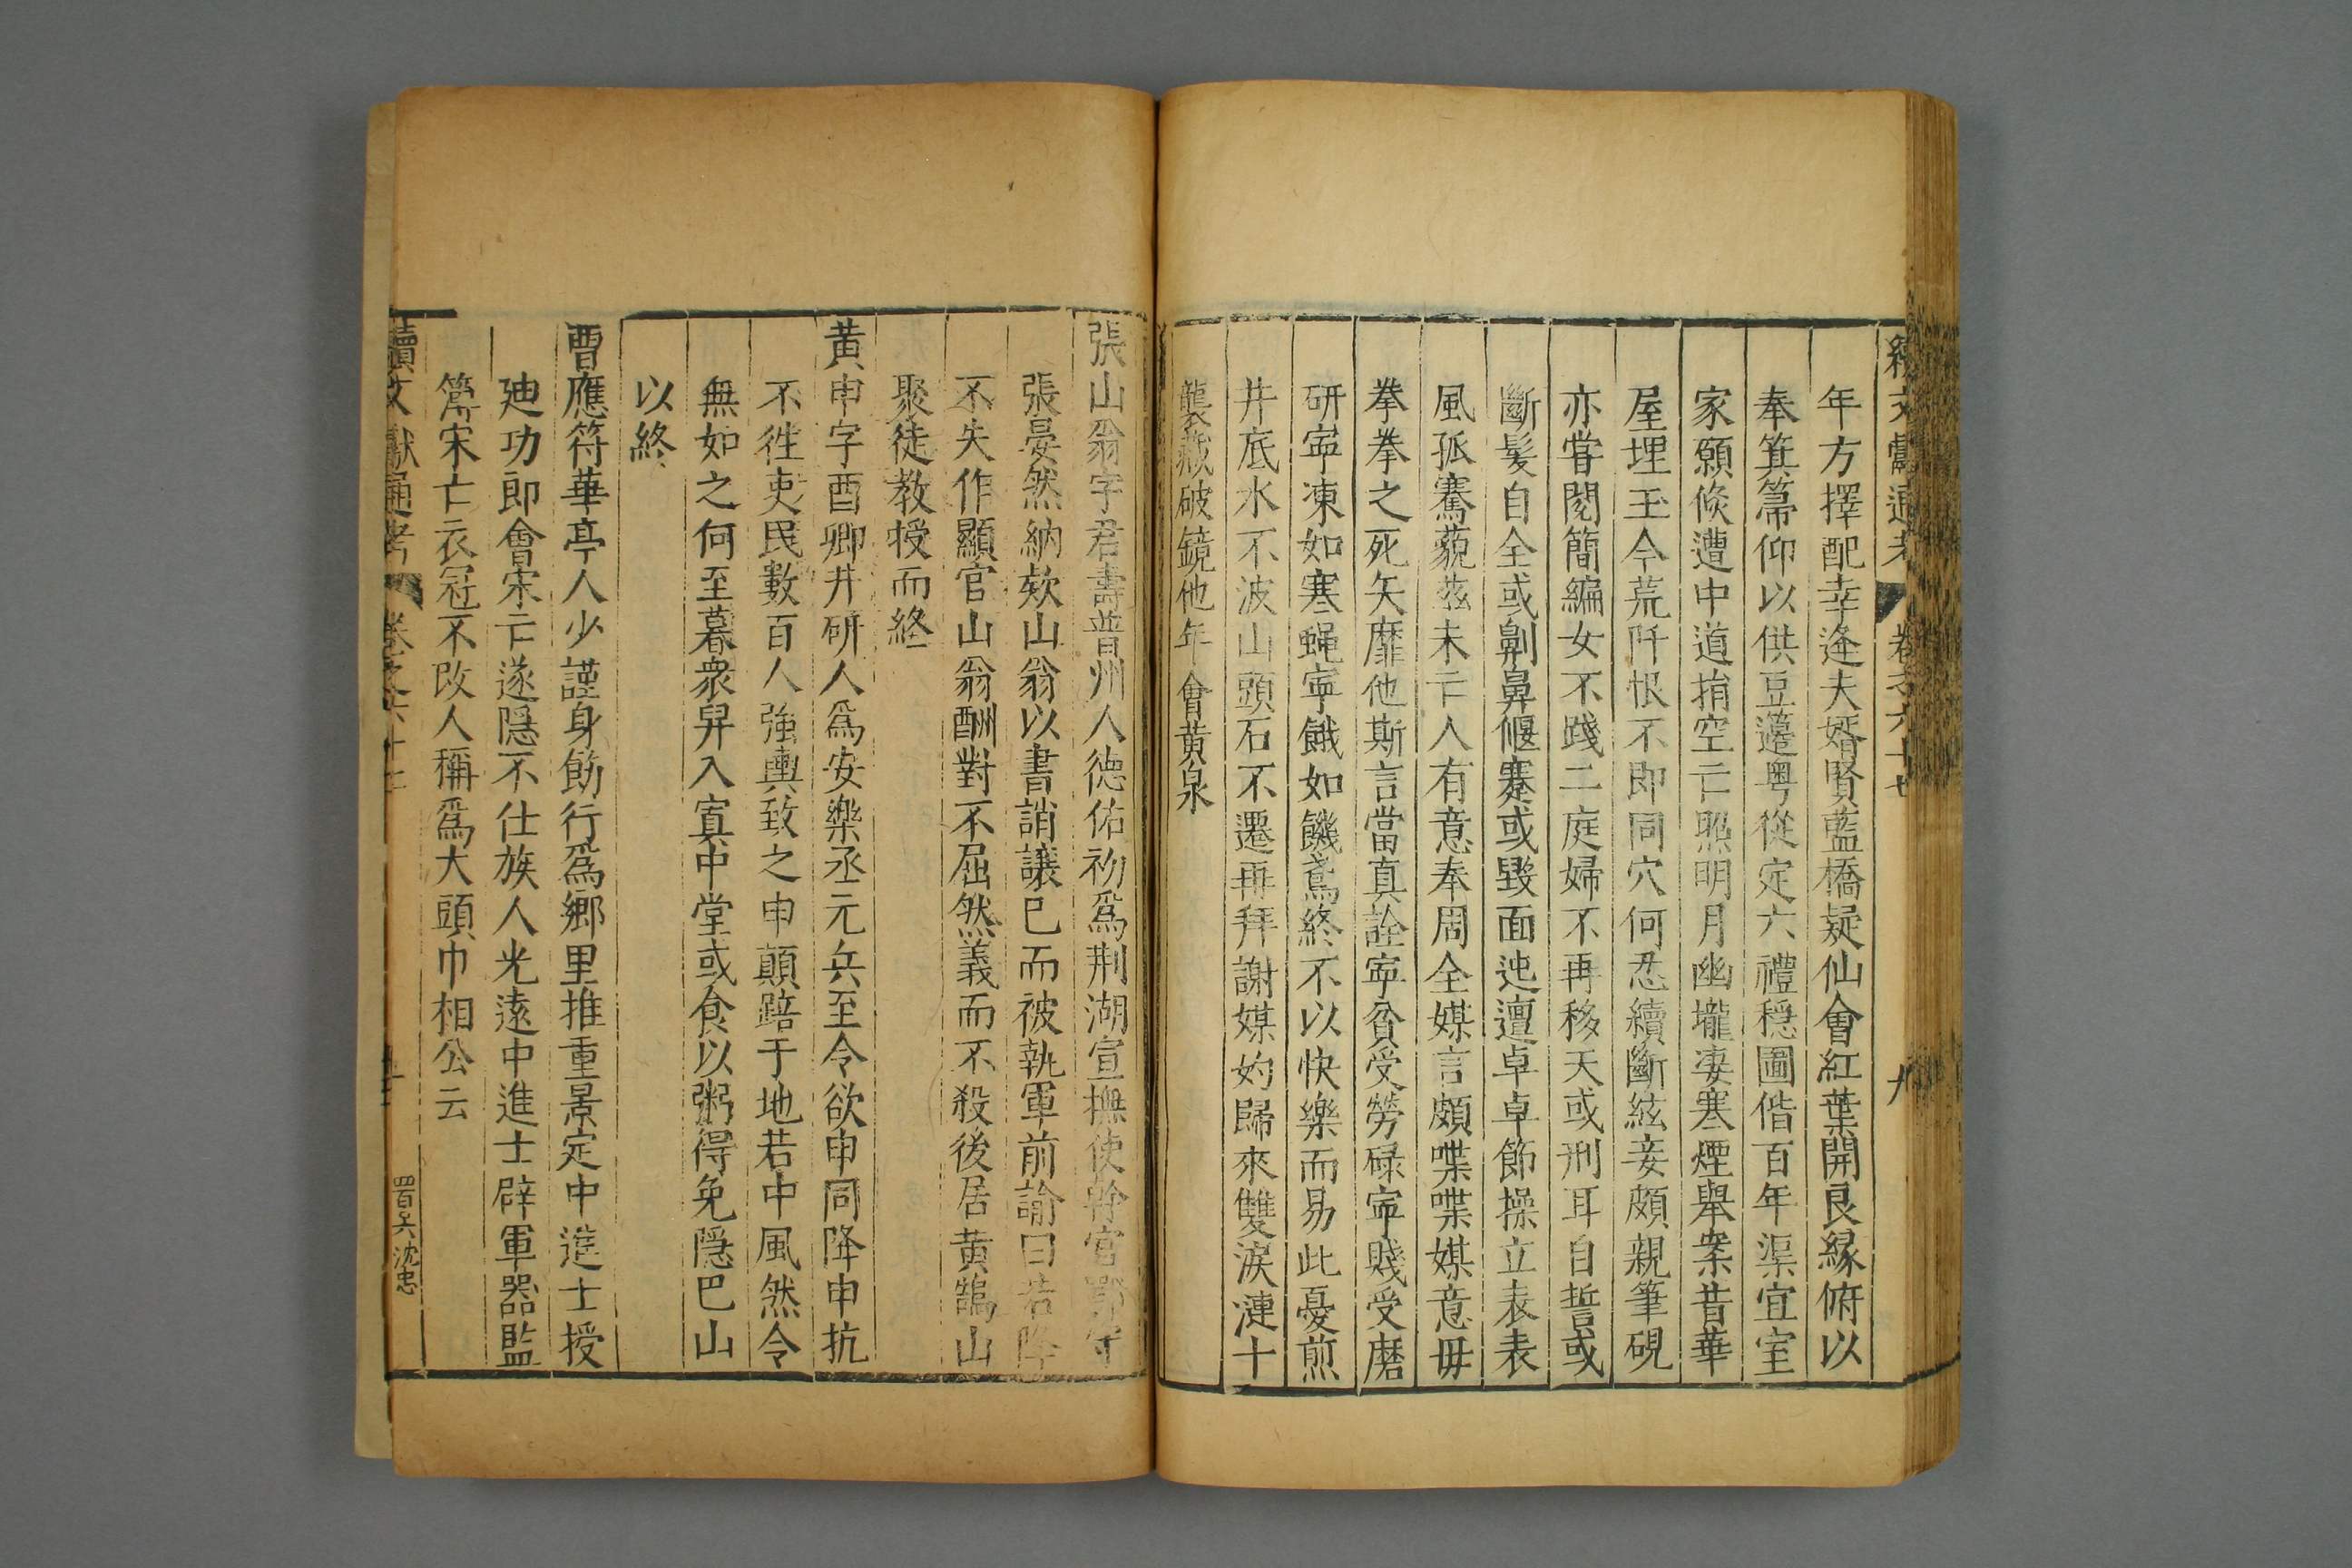 續文獻通考 卷之六十七 九
年方擇配幸逢夫婿賢藍橋疑仙會紅葉開良緣俯以
奉箕箒仰以供豆籩粤從定六禮穩圖偕百年渠宜室
家願倐遭中道捐空亡照明月幽壠凄寒煙舉案昔華
屋埋玉今荒阡恨不即同穴何忍續斷絃妾頗親筆硯
亦嘗閱簡編女不踐二庭婦不再移天或刑耳自誓或
斷髮自全或劓鼻偃蹇或毀面迍邅卓卓節操立表表
風孤騫藐茲未亡人有意奉周全媒言頗喋喋媒意毋
拳拳之死矢靡他斯言當真詮寧貧受勞碌寧賤受磨
研寧凍如寒蝇寧餓如饑鳶終不以快樂而易此憂煎
井底水不波山頭石不遷再拜謝媒妁歸來雙淚漣十
襲藏破鏡他年會黃泉
張山翁字君壽普州人德佑初爲荆湖宣撫使幹官鄂守
張晏然納欵山翁以書誚讓已而被執軍前諭曰若降
不失作顯官山翁酬對不屈然義而不殺後居黃鵠山
聚徒教授而終
黃申字酉卿井研人爲安樂丞元兵至令欲申同降申抗
不徃吏民數百人強輿致之申顛踣于地若中風然令
無如之何至暮衆舁入寘中堂或食以粥得免隱巴山
以終
曹應符華亭人少謹身飭行爲鄉里推重景定中進士授
廸功郎會宋亡遂隱不仕族人光遠中進士辟軍器監
簿宋亡衣冠不改人稱爲大頭巾相公云
續文獻通考 卷之六十七 十 沈忠